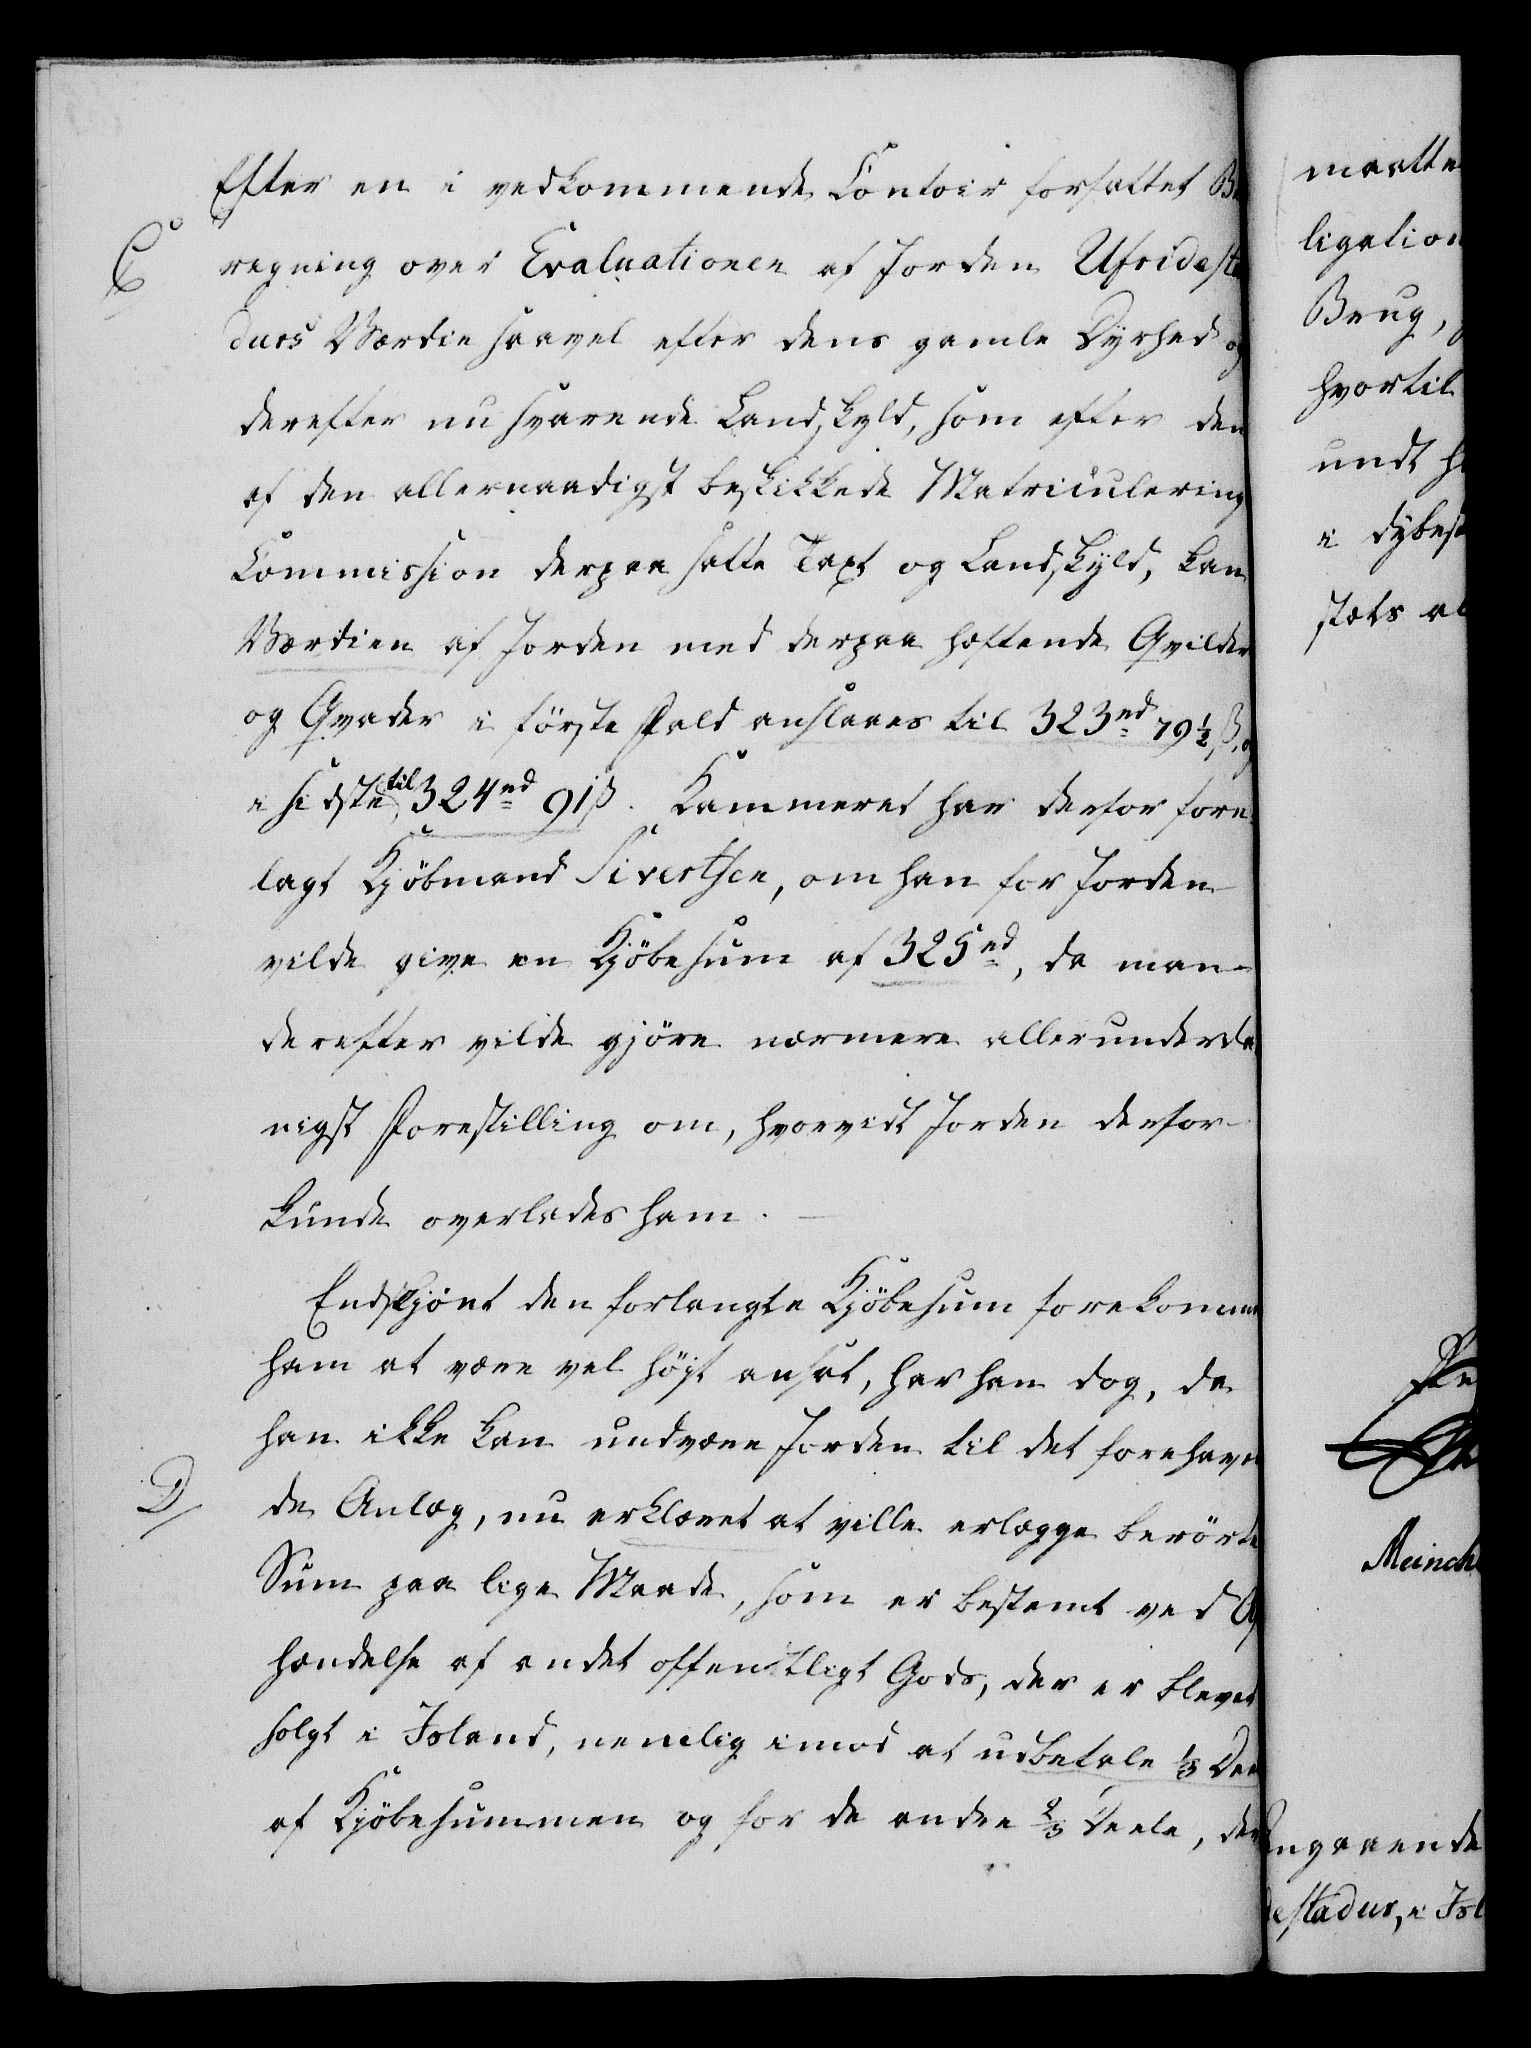 Efter en i vedkommende Contoir forfattet Be
C
regning over Evaluationen af Jorden Ufrideste
durs Værdie saavel efter dens gamle Dyrhed og
derefter nu svarende Landskyld, som efter den
af den allernaadigst beskikkede Matriculering
Commission derpaa satte Taxt og Landskyld, kan
Værdien af Jorden med derpaa hæftende Qvilder
og Qvader i förste Fald anslaaes til 323 rd 79½ ß, og
i sidste til 324 rd 91 ß. Kammeret har derfor fore-
lagt Kjöbmand Sivertsen, om han for Jorden
vilde give en Kjöbesum af 325 rd, da man
derefter vilde gjöre nærmere allerunderda
nigst Forestilling om, hvorvidt Jorden derfor
kunde overlades ham.
Endskjönt den forlangte Kjöbesum forekommer
ham at være vel höit ansat, har han dog, da
han ikke kan undvære Jorden til det forehaven
D
de Anlæg, nu erklæret at ville erlægge berörte
Sum paa lige Maade, som er bestemt ved Af
hændelse af andet offentligt Gods, der er blevet
solgt i Island, nemlig imod at udbetale ⅓ Deel
af Kjöbesummen og for de andre ⅔ Deele, der
maatte
ligation
Brug,
hvortil
undt
i dybest
stats al
Meinch
Angaaende
destadur, i Isl